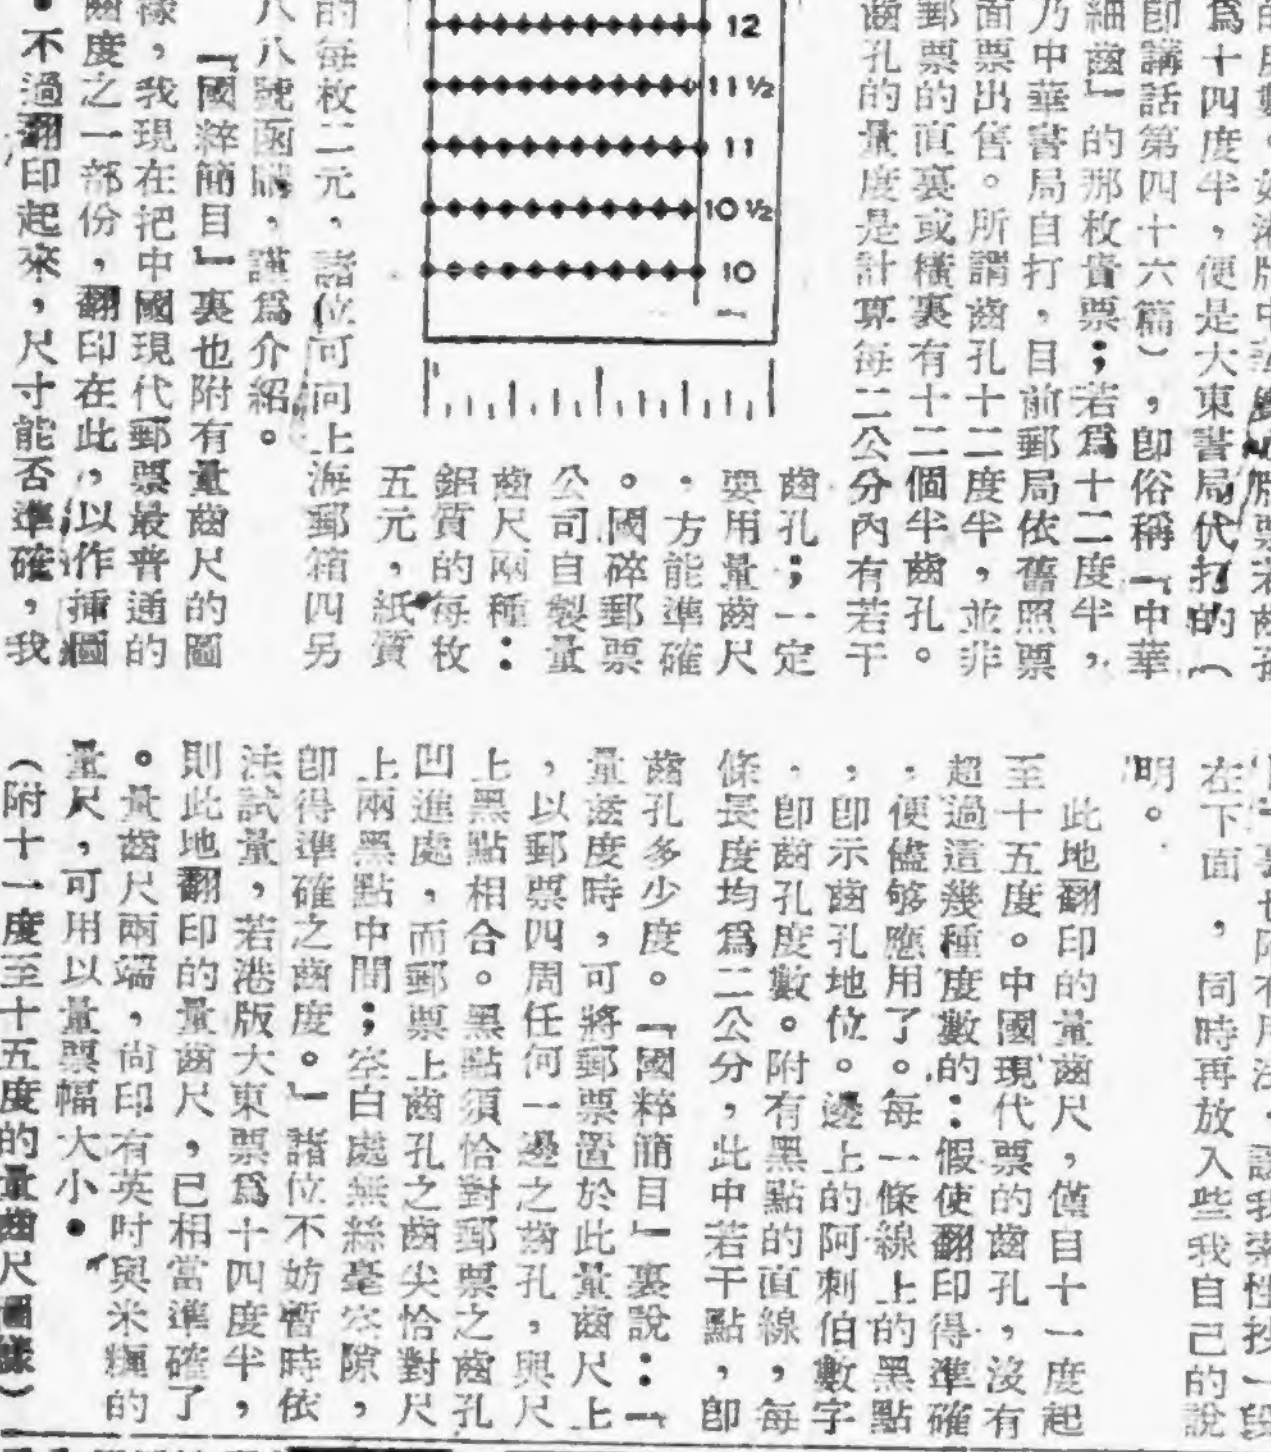 為十四度半，便是大東書局代打的（
即講話第四十六篇），即俗稱「中華
細齒」的那枚貴票；若為十二度半，
乃中華書局自打，目前郵局依舊照票
面票出售。所謂齒孔十二度半，並非
郵票的直裏或橫裏有十二個半齒孔。
齒孔的量度是計算每二公分內有若干
齒孔；一定
要用量齒尺
，方能準確
。國碎郵票
公司自製量
齒尺兩種：
鋁質的每枚
五元，紙質
的每枚二元，諸位可向上海郵箱四另
八八號函購，謹為介紹。
「國粹簡目」裏也附有量齒尺的圖
樣，我現在把中國現代郵票最普通的
齒度之一部份，翻印在此，以作插圖
。不過翻印起來，尺寸能否準確，我
12
11½
11
10½
10
在下面，同時再放入些我自己的說
明。
此地翻印的量齒尺，僅自十一度起
至十五度。中國現代票的齒孔，沒有
超過這幾種度數的：假使翻印得準確
，便儘够應用了。每一條線上的黑點
，即示齒孔地位。邊上的阿刺伯數字
，即齒孔度數。附有黑點的直線，每
條長度均為二公分，此中若干點，即
齒孔多少度。「國粹簡目」裏說：「
量齒度時，可將郵票置於此量齒尺上
，以郵票四周任何一邊之齒孔，與尺
上黑點相合。黑點須恰對郵票之齒孔
凹進處，而郵票上齒孔之齒尖恰對尺
上兩黑點中間；空白處無絲毫空隙，
即得準確之齒度。」諸位不妨暫時依
法試量，若港版大東票為十四度半，
則此地翻印的量齒尺，已相當準確了
。量齒尺兩端，尚印有英吋與米糎的
量尺，可用以量票幅大小。
（附十一度至十五度的量齒尺圖樣）